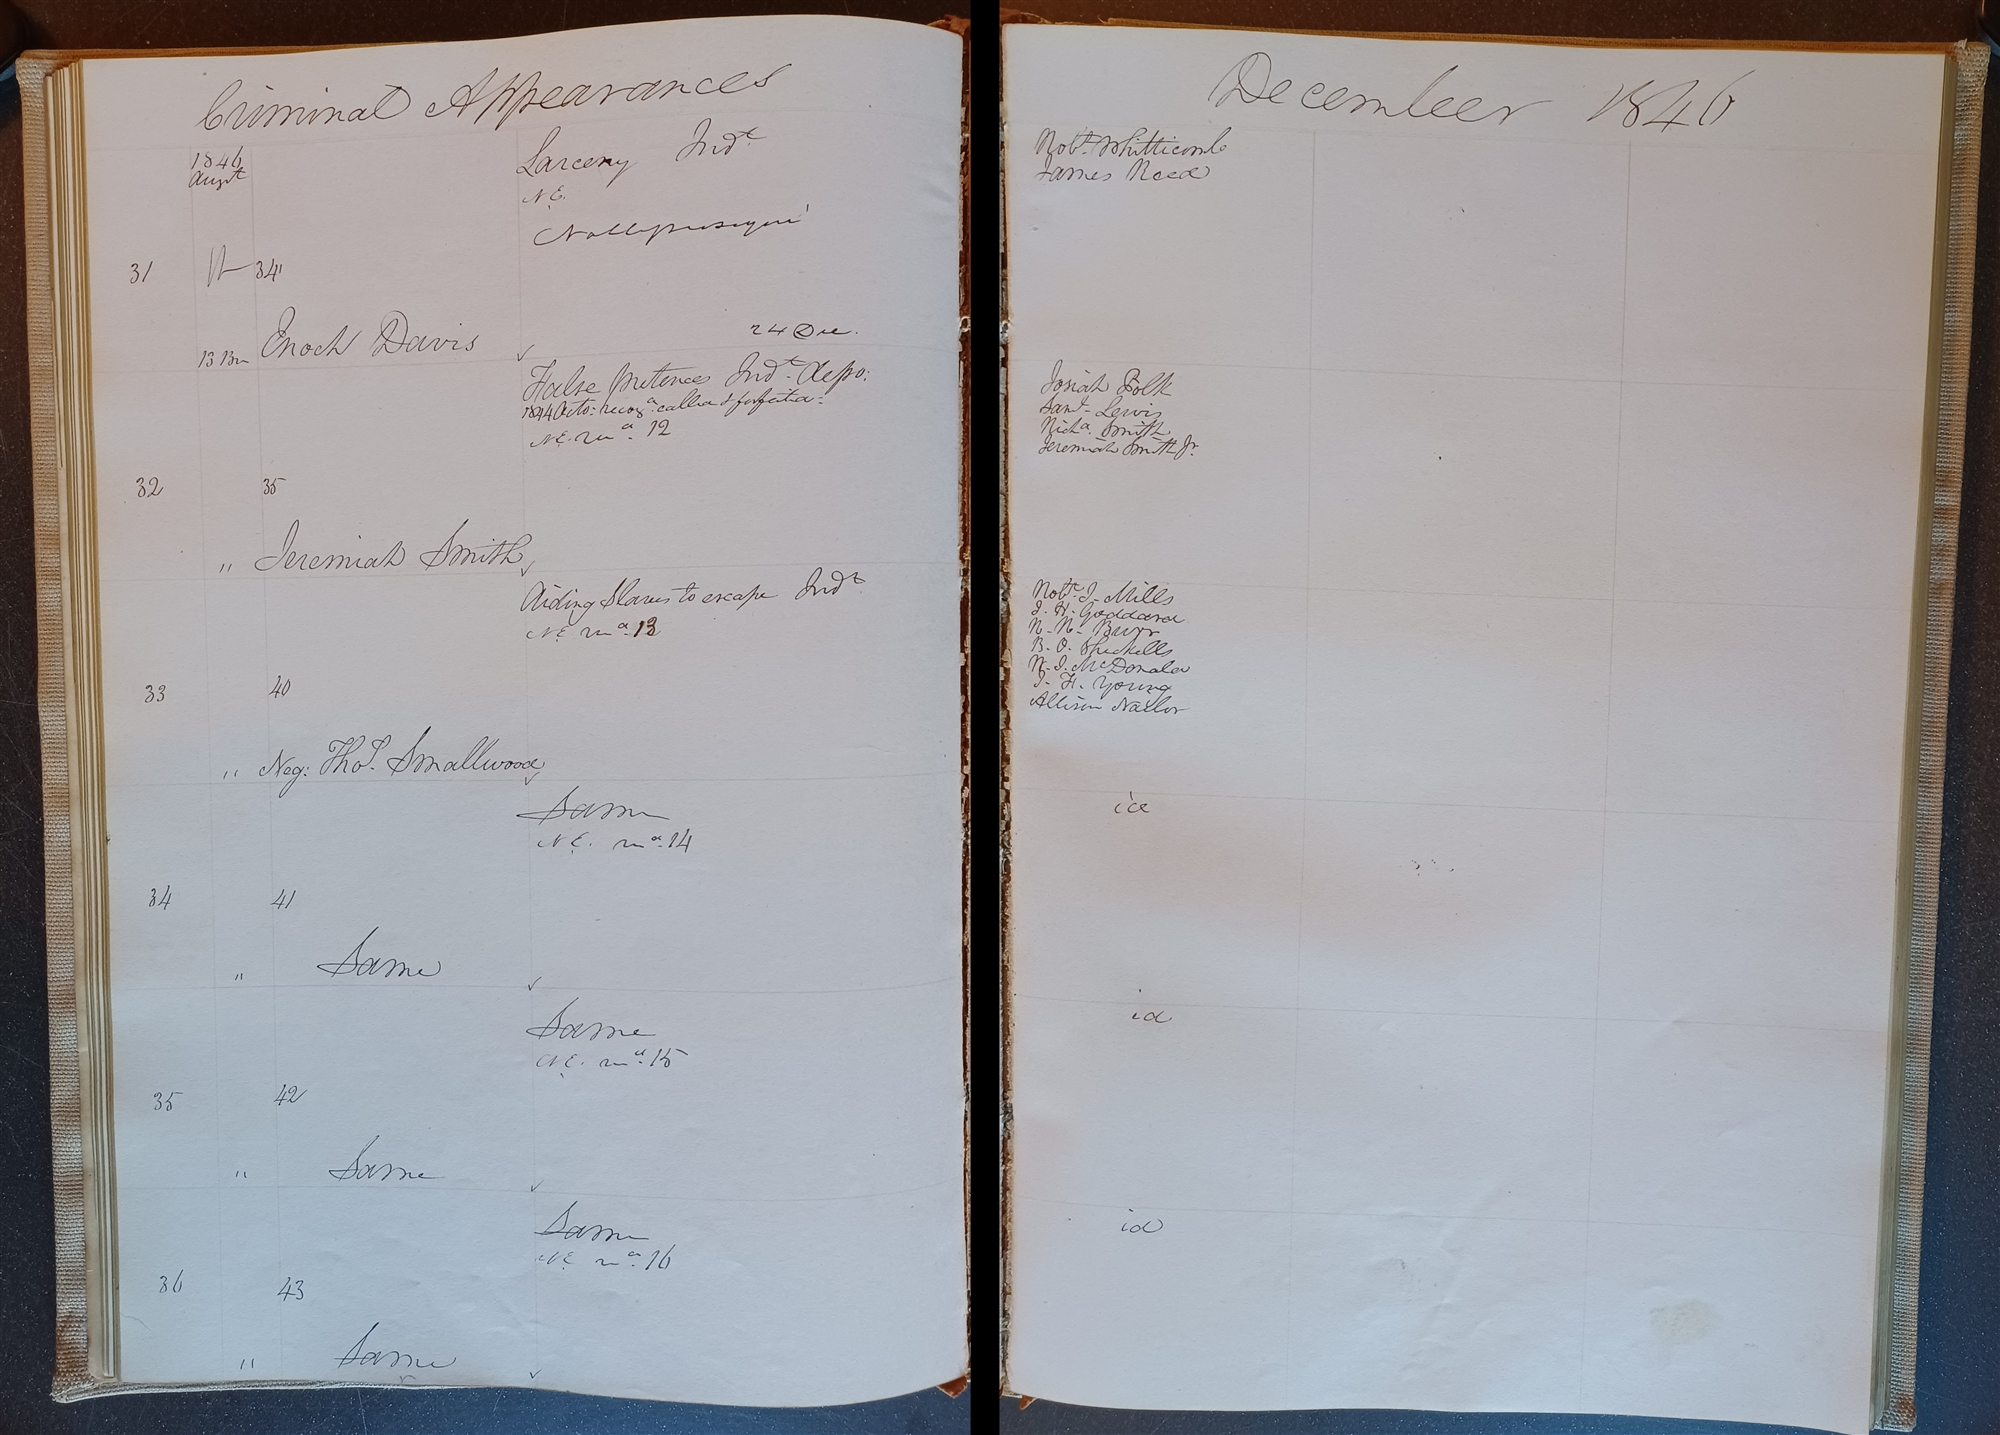 Criminal Appearances
1846
Augt
Larceny Indt
N.E.
Nolleprosequi
31
34
24 Dec.
13 Bn
Enoch Davis
False pretences Indt. depo:
1844 Octo: recoga. called & forfeited:
N.E. ma. 12
32
35
" Jeremiah Smith
Aiding Slaves to escape Indt
N.E. ma. 13
33
40
" Neg: Thos. Smallwood
Same
N.E. ma. 14
34
41
" Same
Same
N.E. ma. 15
35
42
" Same
Same
N.E. ma. 16
36
43
" Same
December 1846
Robt. Whitticomb
James Reed
Josiah Polk
Saml. Lewis
Richd. Smith
Jeremiah Smith Jr.
Robt. J. Mills
J. H. Goddard
R. R. Burr
B. O. Sheckells
W. J. McDonald
J. H. Young
Allison Nailor
id
id
id